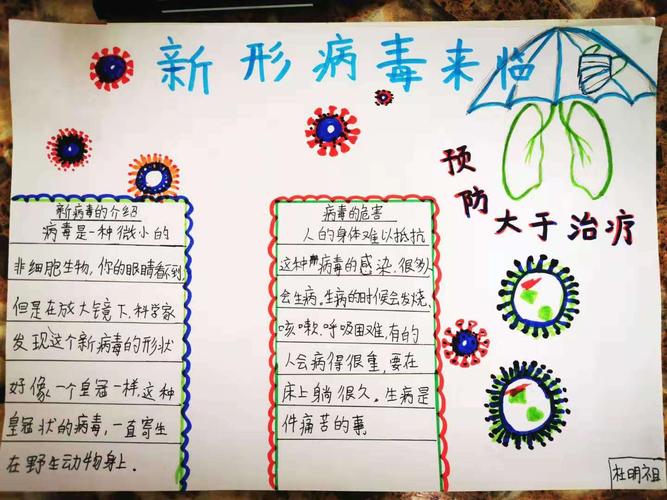 新形病毒来临
预防
大于治疗
新病毒的介绍
病毒是一种微小的
非细胞生物,你的眼睛看不到,
但是在放大镜下,科学家
发现这个新病毒的形状
好像一个皇冠一样,这种
皇冠状的病毒,一直寄生
在野生动物身上.
病毒的危害
人的身体难以抵抗
这种病毒的感染.很多人
会生病,生病的时候会发烧,
咳嗽.呼吸困难,有的
人会病得很重,要在
床上躺很久。生病是
件痛苦的事
杜明祖